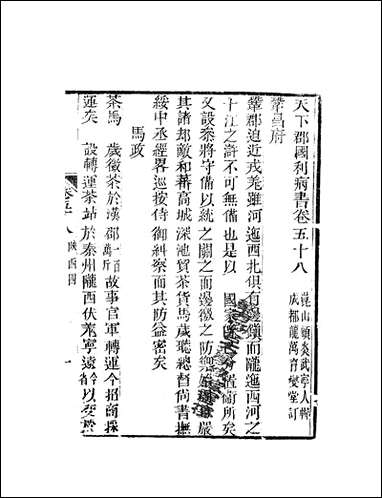 天下郡國利病書卷五十八
崑山顧炎武亭人輯
成都龍萬育燮堂訂
鞏昌府
鞏郡迫近戎羌雖河迤西北俱有邊鎭而隴迤西河之
十江之滸不可無備也是以 國家 分置衞所矣
又設叅將守備以統之關之而邊徼之防禦 嚴
其諸却敵和蕃高城深池貿茶貨馬歳聽總督尚書撫
綏中丞經畧巡按侍御糾察而其防益密矣
馬政
茶馬 歳徵茶於漢郡一百萬斤故事官軍轉運今招商採
運矣 設轉運茶站於秦州隴西伏羌寧遠 令以 於
卷五十八 陝西四
一